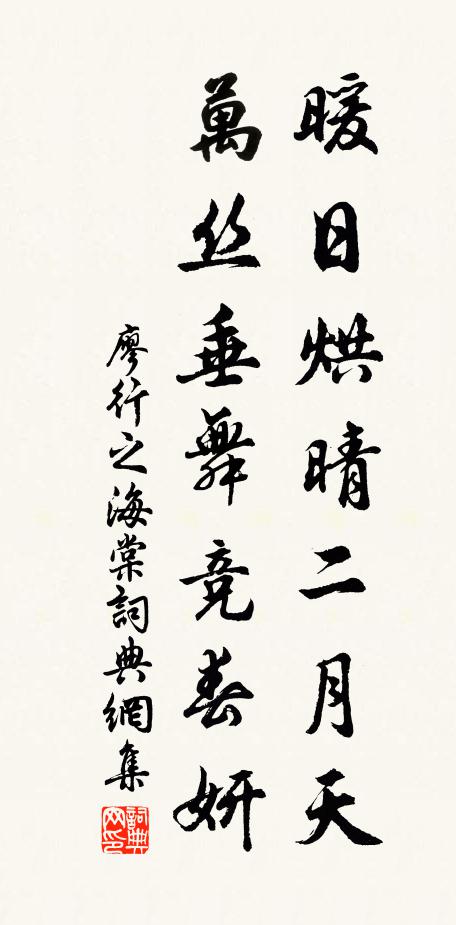 暖日烘晴二月天
萬丝垂舞竞春妍
廖行之海棠詞典網集
詞典网印